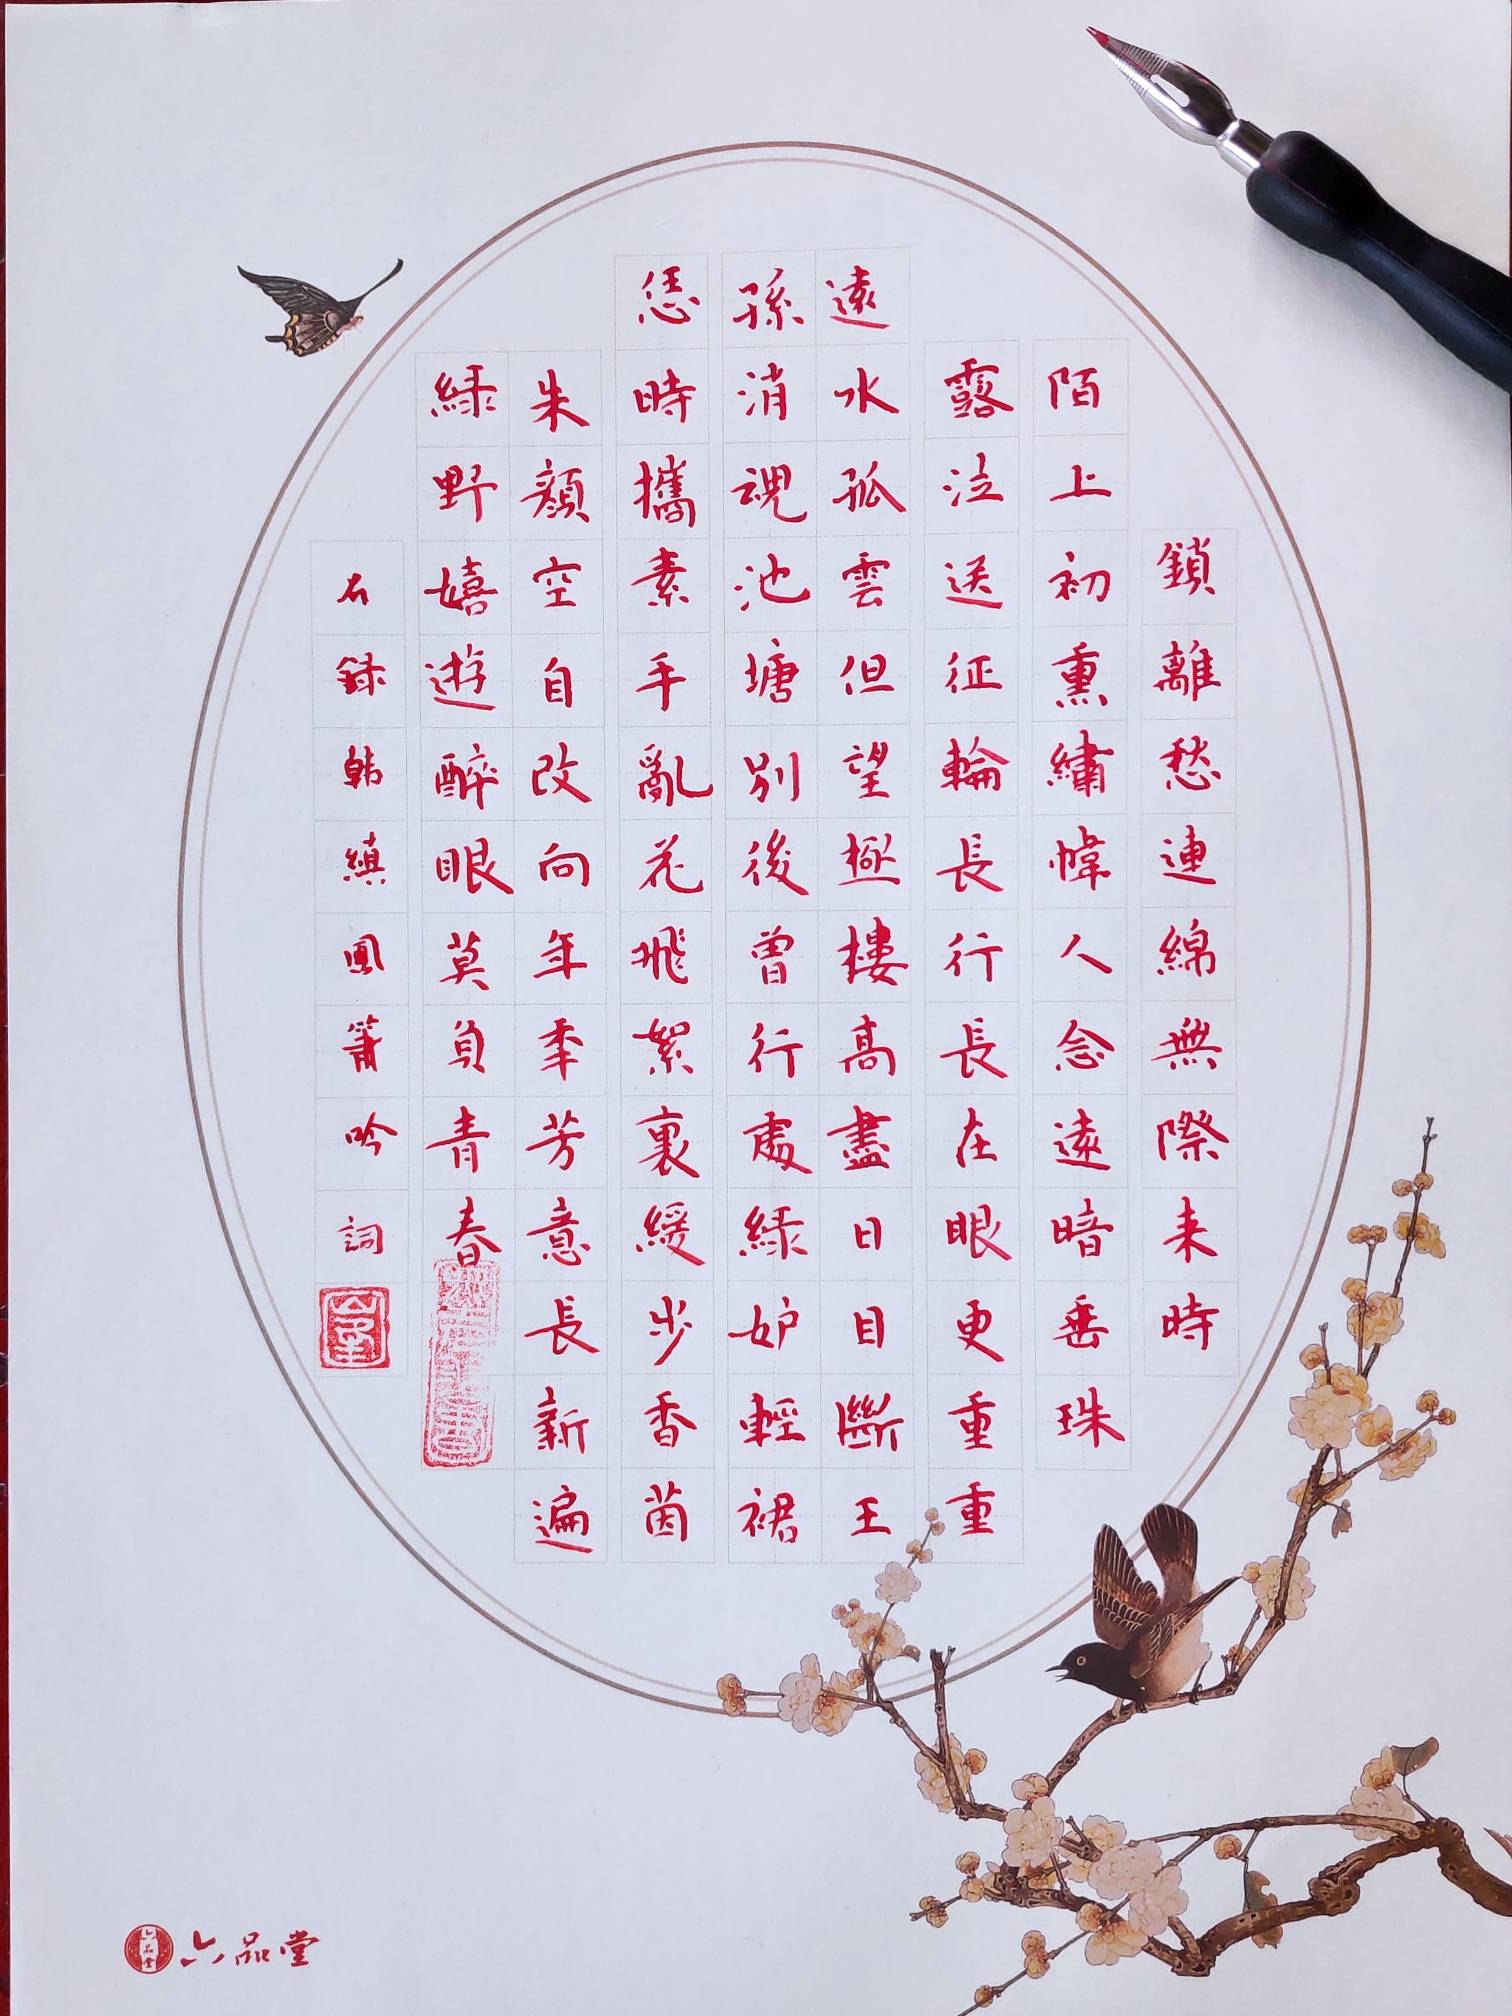 鎖離愁連綿無際来時
陌上初熏繡幃人念遠暗垂珠
露泣送征輪長行長在眼更重重
遠水孤雲但望極樓高盡日目斷王
孫消魂池塘別後曾行處緑妒輕裙
恁時攜素手亂花飛絮裏緩步香茵
朱顏空自改向年秊芳意長新遍
緑野嬉遊醉眼莫負青春
右録韩縝鳳簫吟詞
六品堂